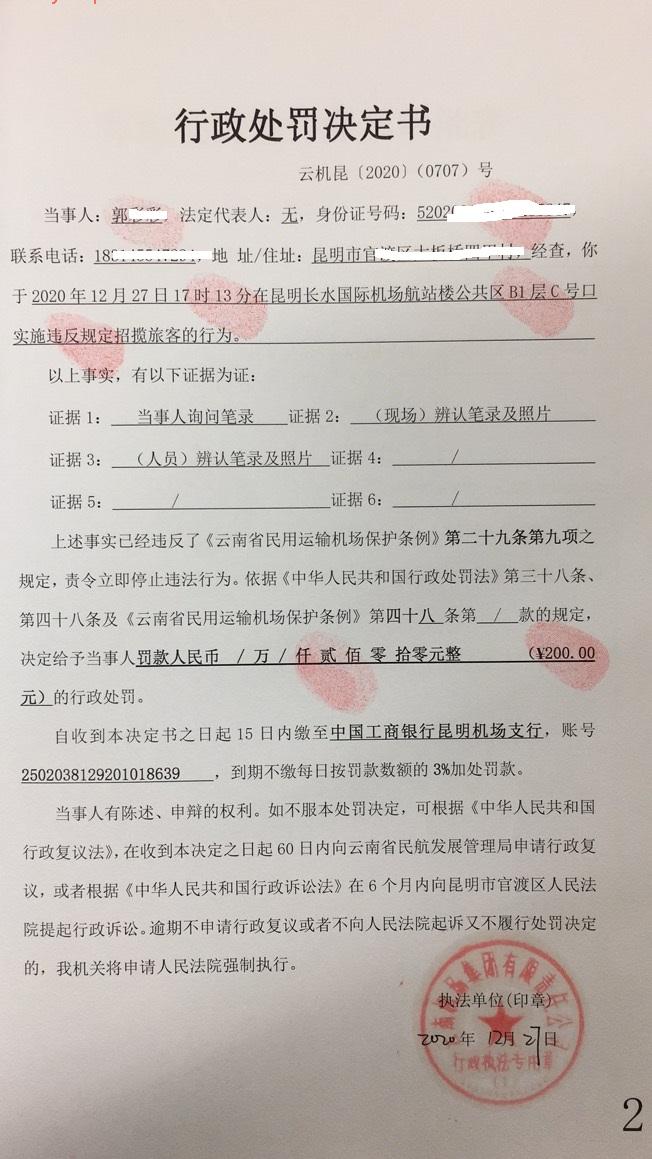 行政处罚决定书
云机昆〔2020〕(0707)号
当事人：郭 法定代表人：无，身份证号码：5202
联系电话：18 地 址/住址：昆明市官渡区 经查，你
于2020年12月27日17时13分在昆明长水国际机场航站楼公共区B1层C号口
实施违反规定招揽旅客的行为。
以上事实，有以下证据为证：
证据1： 当事人询问笔录 证据2： （现场）辨认笔录及照片
证据3： （人员）辨认笔录及照片 证据4： /
证据5： / 证据6： /
上述事实已经违反了《云南省民用运输机场保护条例》第二十九条第九项之
规定，责令立即停止违法行为。依据《中华人民共和国行政处罚法》第三十八条、
第四十八条及《云南省民用运输机场保护条例》第四十八 条第 / 款的规定，
决定给予当事人罚款人民币 / 万 / 仟 贰 佰 零 拾零元整 （¥200.00
元）的行政处罚。
自收到本决定书之日起15日内缴至中国工商银行昆明机场支行，账号
2502038129201018639 ，到期不缴每日按罚款数额的3%加处罚款。
当事人有陈述、申辩的权利。如不服本处罚决定，可根据《中华人民共和国
行政复议法》，在收到本决定之日起60日内向云南省民航发展管理局申请行政复
议，或者根据《中华人民共和国行政诉讼法》在6个月内向昆明市官渡区人民法
院提起行政诉讼。逾期不申请行政复议或者不向人民法院起诉又不履行处罚决定
的，我机关将申请人民法院强制执行。
集团有限责任公
执法单位(印章)
2020年 12月 27日
行政执法专用章
(1)
2